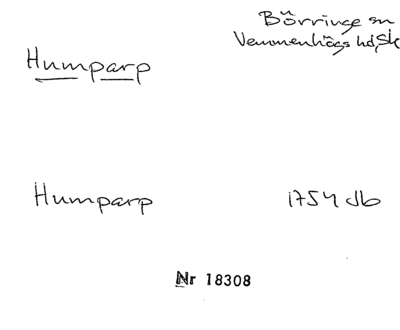 Börringe sn
Vemmenhögs hd, Sk
Humparp
Humparp 1754 db
Nr 18308